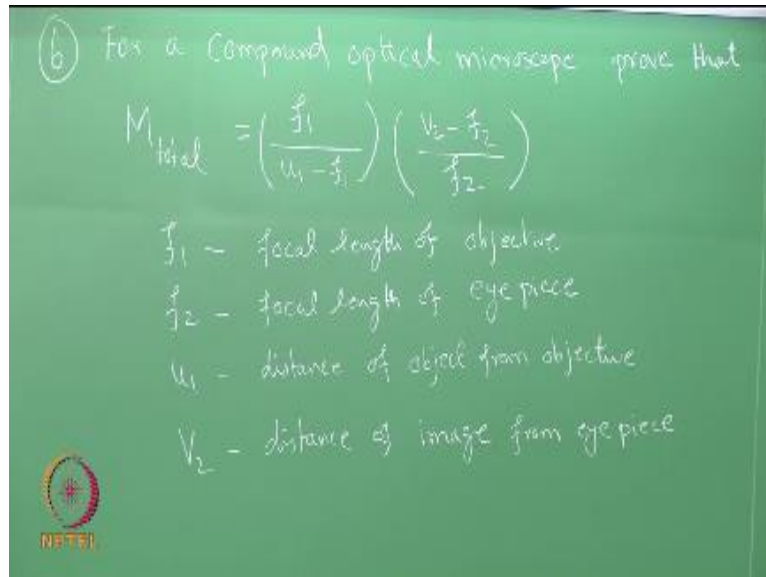 (6) For a Compound optical microscope prove that
M_total = (f1 / (u1 - f1)) ((V2 - f2) / f2)
f1 - focal length of objective
f2 - focal length of eye piece
u1 - distance of object from objective
V2 - distance of image from eye piece
NPTEL